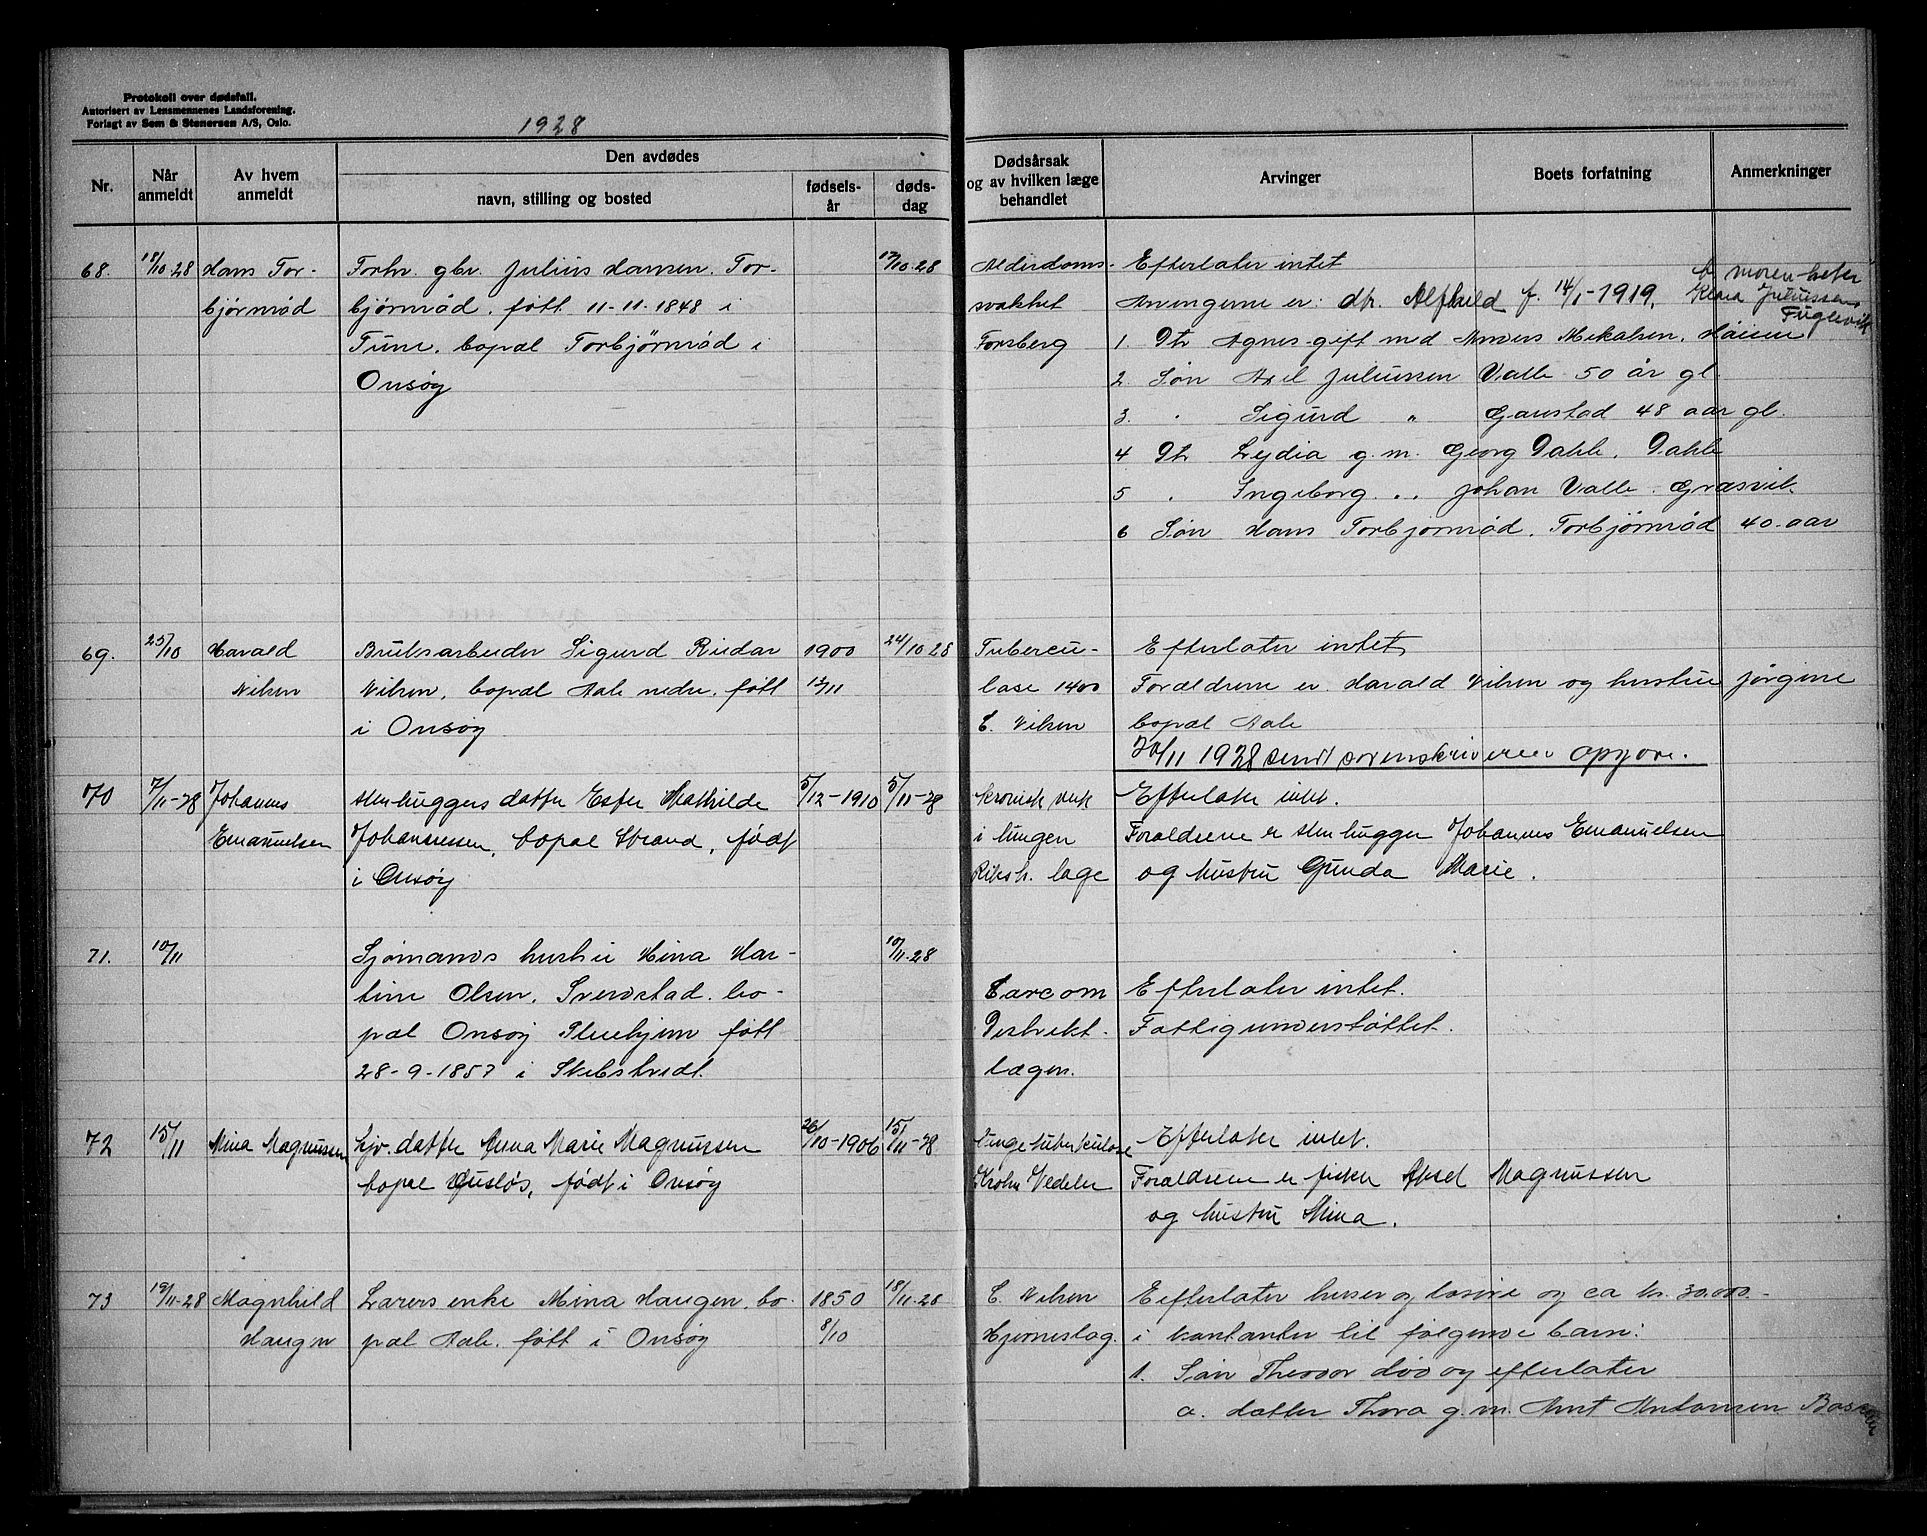 Protokoll over dødsfall.
Autorisert av Lensmennenes Landsforening.
Forlagt av Sem & Stenersen A/S, Oslo.
1928
Nr.
Når anmeldt
Av hvem anmeldt
Den avdødes
navn, stilling og bosted
fødsels-år
døds-dag
Dødsårsak og av hvilken læge behandlet
Arvinger
Boets forfatning
Anmerkninger
68. 18/10-28 Hans Tor- Forhv. gbr. Julius Hansen. Tor- 17/10-28 Alderdoms- Efterlater intet
b, moren heter
bjørnrød bjørnrød. født 11-11-1848 i svakhet Arvingerne er: dtr. Alfhild f. 14/1-1919, Klara Juliussen
Fuglevik
Tune. bopæl Torbjørnrød i Forsberg 1. Dtr Agnes gift med Anders Mikalsen.
Onsøy 2. Søn Axel Juliussen Valle 50 år gl.
3. " Sigurd " Gaustad 48 aar gl.
4 Dtr Lydia g.m. Georg Dahle. Dahle
5 " Ingeborg " " Johan Valle. Græsvik
6 Søn Hans Torbjørnrød. Torbjørnrød 40 aar
69. 25/10 Harald Bruksarbeider Sigurd Reidar 1900 24/10 28 Tubercu- Efterlater intet
Nilsen Nilsen, bopæl Aale nedre. født 13/11 lose 1400 Forældrene er Harald Nilsen og hustru Jørgine
i Onsøy C. Nilsen bopæl Aale
20/11 1928 sendt sorenskriveren opgave.
70 7/11-28 Johannes stenhuggers datter Ester Mathilde 5/12-1910 5/11-28 kronisk Efterlater intet.
Emanuelsen Johannessen, bopæl Strand, født i lungen Forældrene er stenhugger Johannes Emanuelsen
i Onsøy Riksh. læge og hustru Gunda Marie.
71. 10/11 Sjømands hustru Mina Mar- 10/11-28
tine Olsen. Svendstad. bo- Sarcom Efterlater intet.
pæl Onsøy Pleiehjem født Distrikt- Fattigunderstøttet.
28-9-1857 i Skibtvedt. lægen.
72 15/11 Mina Magnussen Gjv. datter Anna Marie Magnussen 26/10-1906 15/11-28 Lungetuberkulose Efterlater intet.
bopæl Gusløs, født i Onsøy Krohn Vedeler Forældrene er fisker Aksel Magnussen
og hustru Mina.
73 19/11-28 Magnhild Lærers enke Mina Haugen. bo- 1850 18/11-28 C. Nilsen Eefterlater huser og løsøre og ca kr. 30.000.-
Haugen pæl Aale. født i Onsøy 8/10 Hjerneslag. i kontanter til følgende barn:
1. Søn Theodor død og efterlater
a. datter Thora g.m. Arnt Antonsen